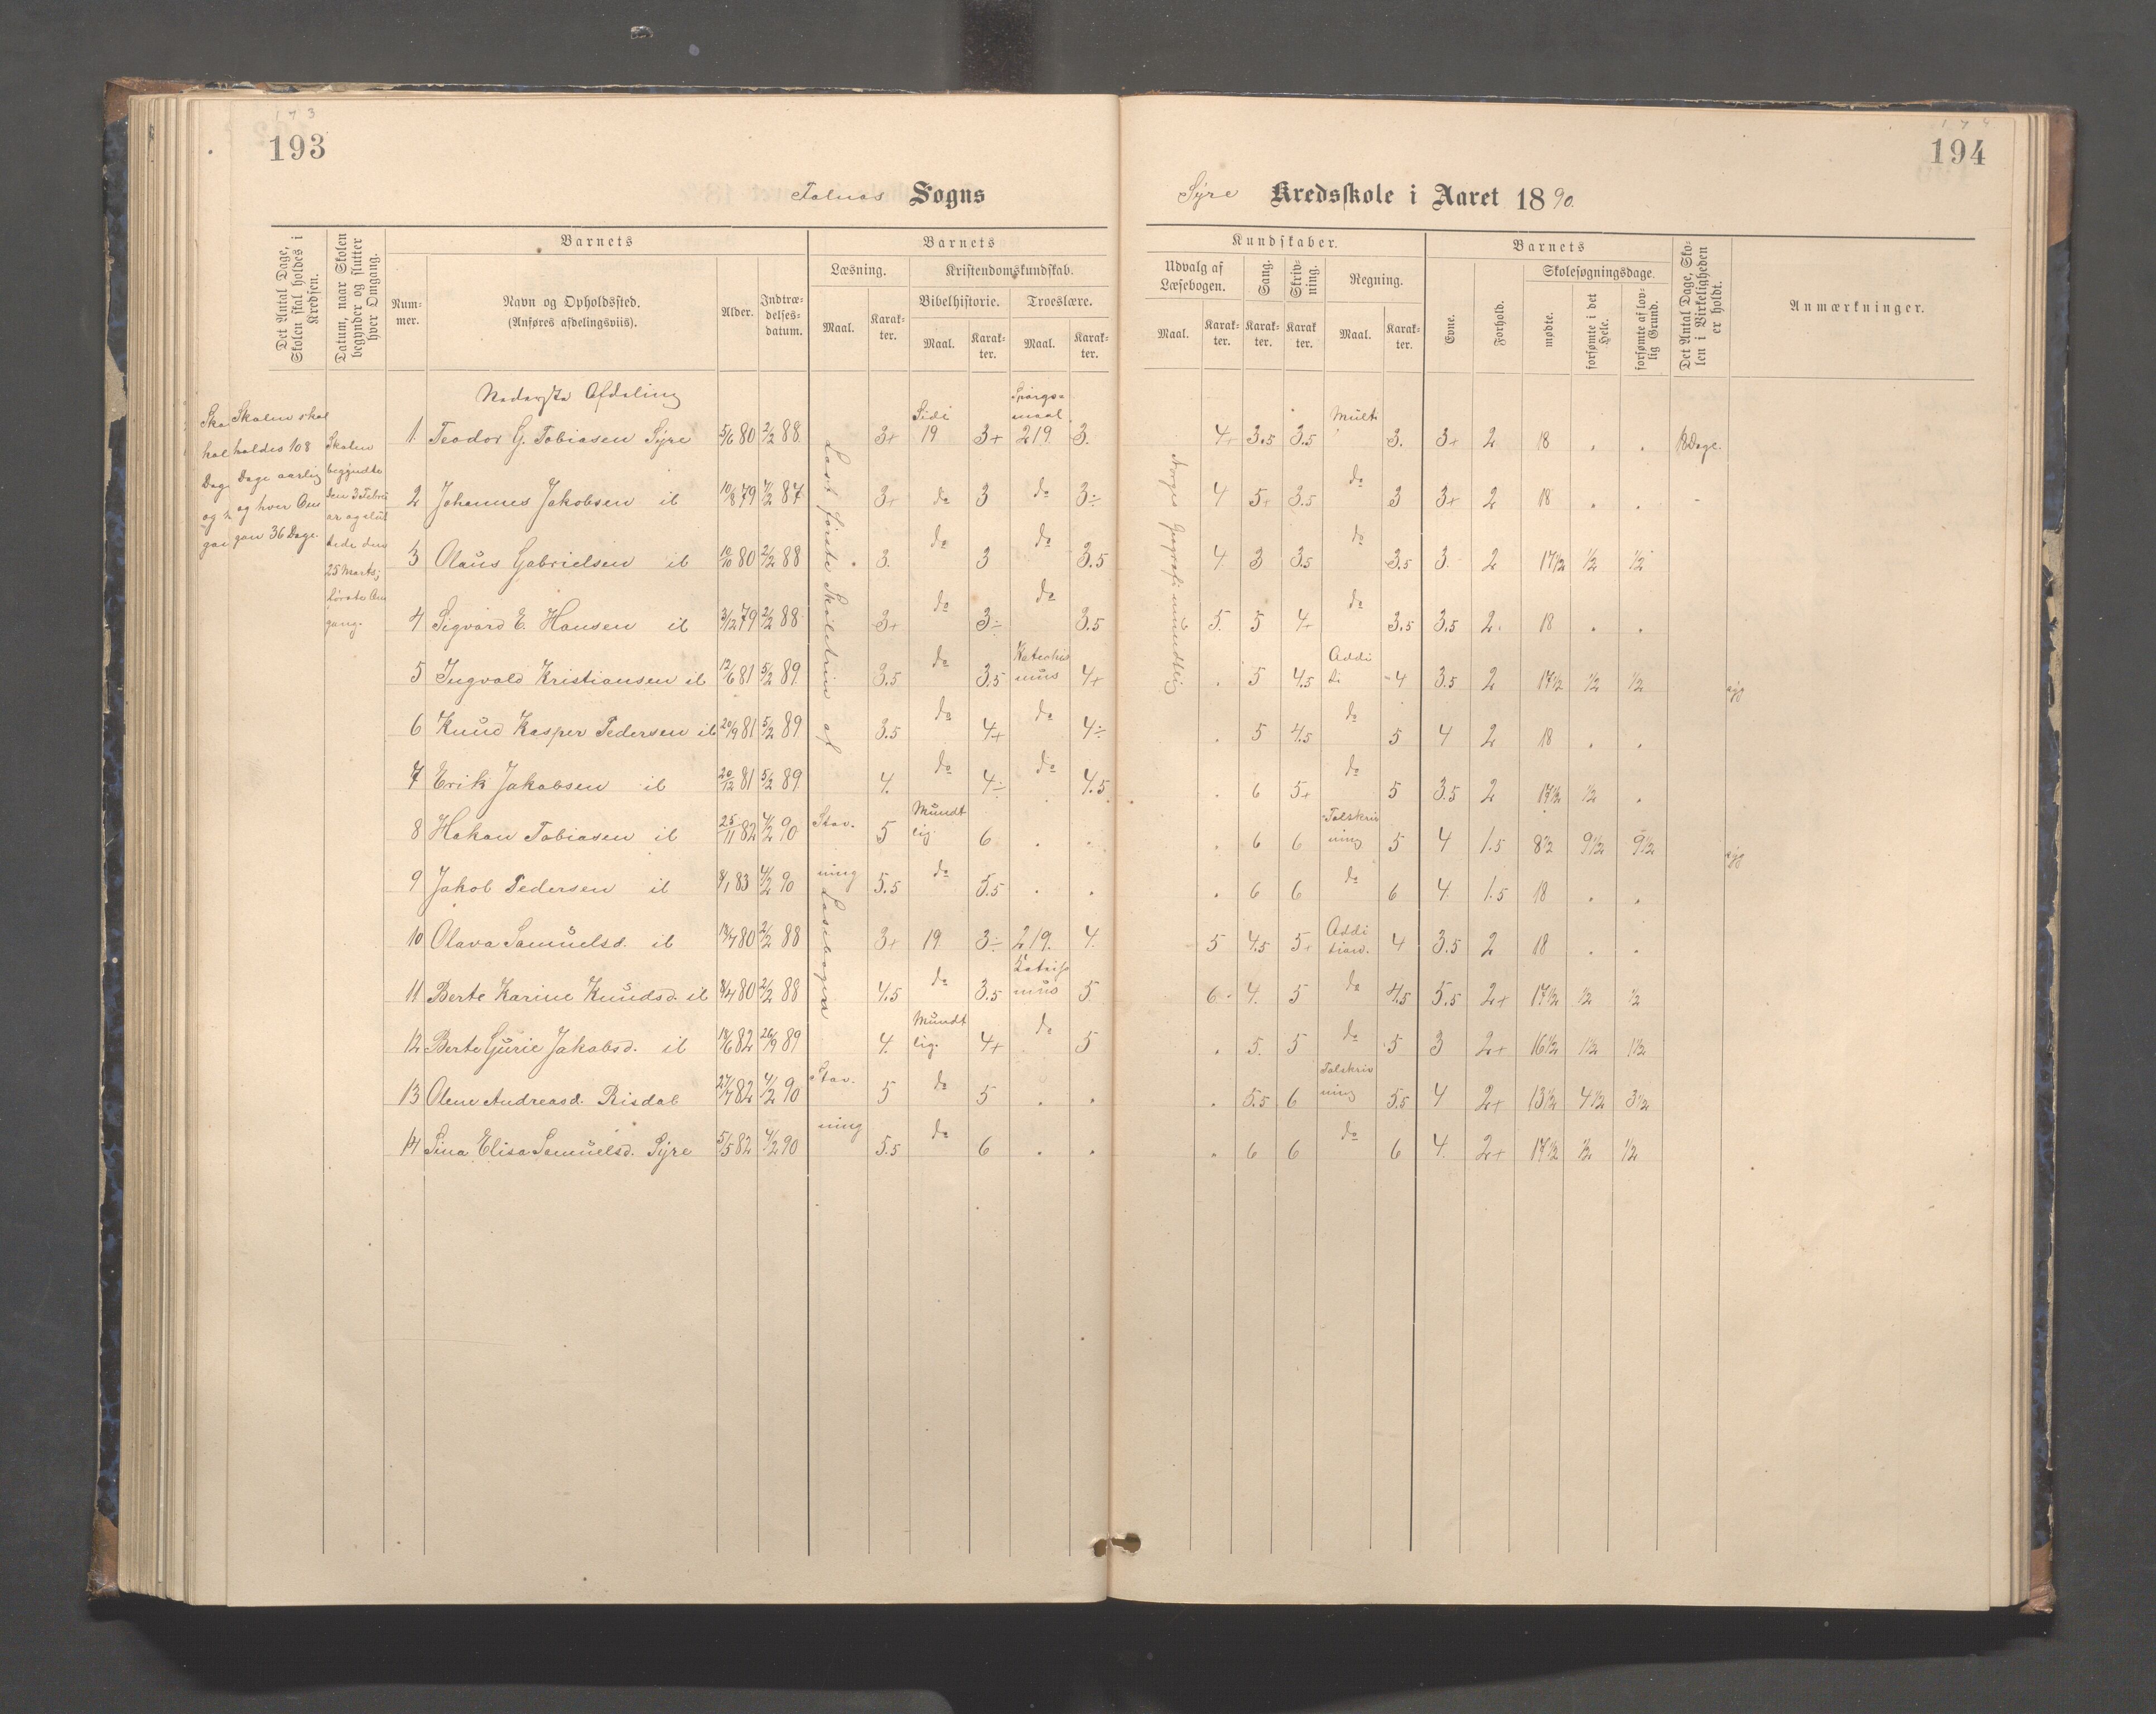 173
193
Falnæs Sogns
Det Antal Dage, Skolen skal holdes i Kredsen.
Datum, naar Skolen begynder og slutter hver Omgang.
Barnets
Num-
mer.
Navn og Opholdssted.
(Anføres afdelingsviis).
Alder.
Indtræ-
delses-
datum.
Barnets
Læsning.
Kristendomskundskab.
Bibelhistorie.
Troeslære.
Maal.
Karak-
ter.
Maal.
Karak-
ter.
Maal.
Karak-
ter.
Skolen skal
holdes 108
Dage aarlig
og hver Om
gan 36 Dage.
Skolen
begyndte
den 3 Febru
ar og slut
tede den
25 Marts;
første Om
gang.
Læst første Skoletrin af Læsebogen
Nederste Afdeling
1. Teodor G. Tobiasen Syre 5/6 80 2/2 88 3+ Side 19 3+ Spörgs=maal 219. 3.
2 Johannes Jakobsen ib 10/8 79 7/2 87 3+ do 3 do 3÷
3 Olaus Gabrielsen ib 10/10 80 2/2 88 3. do 3 do 3.5
4 Sigvard E. Hansen ib 3/12 79 2/2 88 3+ do 3÷ do 3.5
5 Ingvald Kristiansen ib 12/6 81 5/2 89 3.5 do 3.5 Katechis mus 4+
6 Knud Kasper Pedersen ib 20/9 81 5/2 89 3.5 do 4+ do 4÷
7 Erik Jakobsen ib 20/12 81 5/2 89 4. do 4÷ do 4.5
8 Hakon Tobiasen ib 25/11 82 4/2 90 Stav. 5 Mundt lig 6 . .
9 Jakob Pedersen ib 8/1 83 4/2 90 ning 5.5 do 5.5 . .
10 Olava Samuelsd. ib 19/7 80 2/2 88 3+ 19. 3÷ 219. 4.
11 Berte Karine Knudsd. ib 8/4 80 2/2 88 4.5 do 3.5 mus 5
12 Berte Gurie Jakobsd. ib 14/6 82 26/9 89 4. Mundt lig. 4+ do 5
13 Olene Andreasd. Risdal 27/7 82 4/2 90 Stav. 5 do 5 . .
14 Sina Elisa Samuelsd. Syre 5/5 82 4/2 90 ning 5.5 do 6 . .
174
194
Syre Kredsskole i Aaret 1890.
Kundskaber.
Udvalg af
Læsebogen.
Sang.
Skriv-
ning.
Regning.
Maal.
Karak-
ter.
Karak-
ter.
Karak
ter.
Maal.
Karak-
ter.
Barnets
Evne.
Forhold.
Skolesøgningsdage.
mødte.
forsømte i det Hele.
forsømte af lov-
lig Grund.
Det Antal Dage, Sko-
len i Virkeligheden
er holdt.
Anmærkninger.
Norges Geografi mundtlig
4+ 3.5 3.5 Mult. 3. 3+ 2 18 . . 18 Dage.
4 5+ 3.5 do 3 3+ 2 18 . .
4 3 3.5 do 3.5 3. 2 17 1/2 1/2 1/2
5. 5 4+ do 3.5 3.5 2. 18 . .
. 5 4.5 Addi ti 4 3.5 2 17 1/2 1/2 1/2 syg
. 5 4.5 do 5 4 2 18 . .
. 6 5+ do 5 3.5 2 17 1/2 1/2 .
. 6 6 Talskriv ning 5 4 1.5 8 1/2 9 1/2 9 1/2 syg
. 6 6 do 6 4. 1.5 18 . .
5 4.5 5+ Addi tion. 4 3.5 2 18 . .
6 4. 5 do 4.5 5.5 2+ 17 1/2 1/2 1/2
. 5. 5 do 5 3 2+ 16 1/2 1 1/2 1 1/2
. 5.5 6 Talskriv ning 5.5 4 2+ 13 1/2 4 1/2 3 1/2
. 6 6 do 6 4. 2+ 17 1/2 1/2 1/2